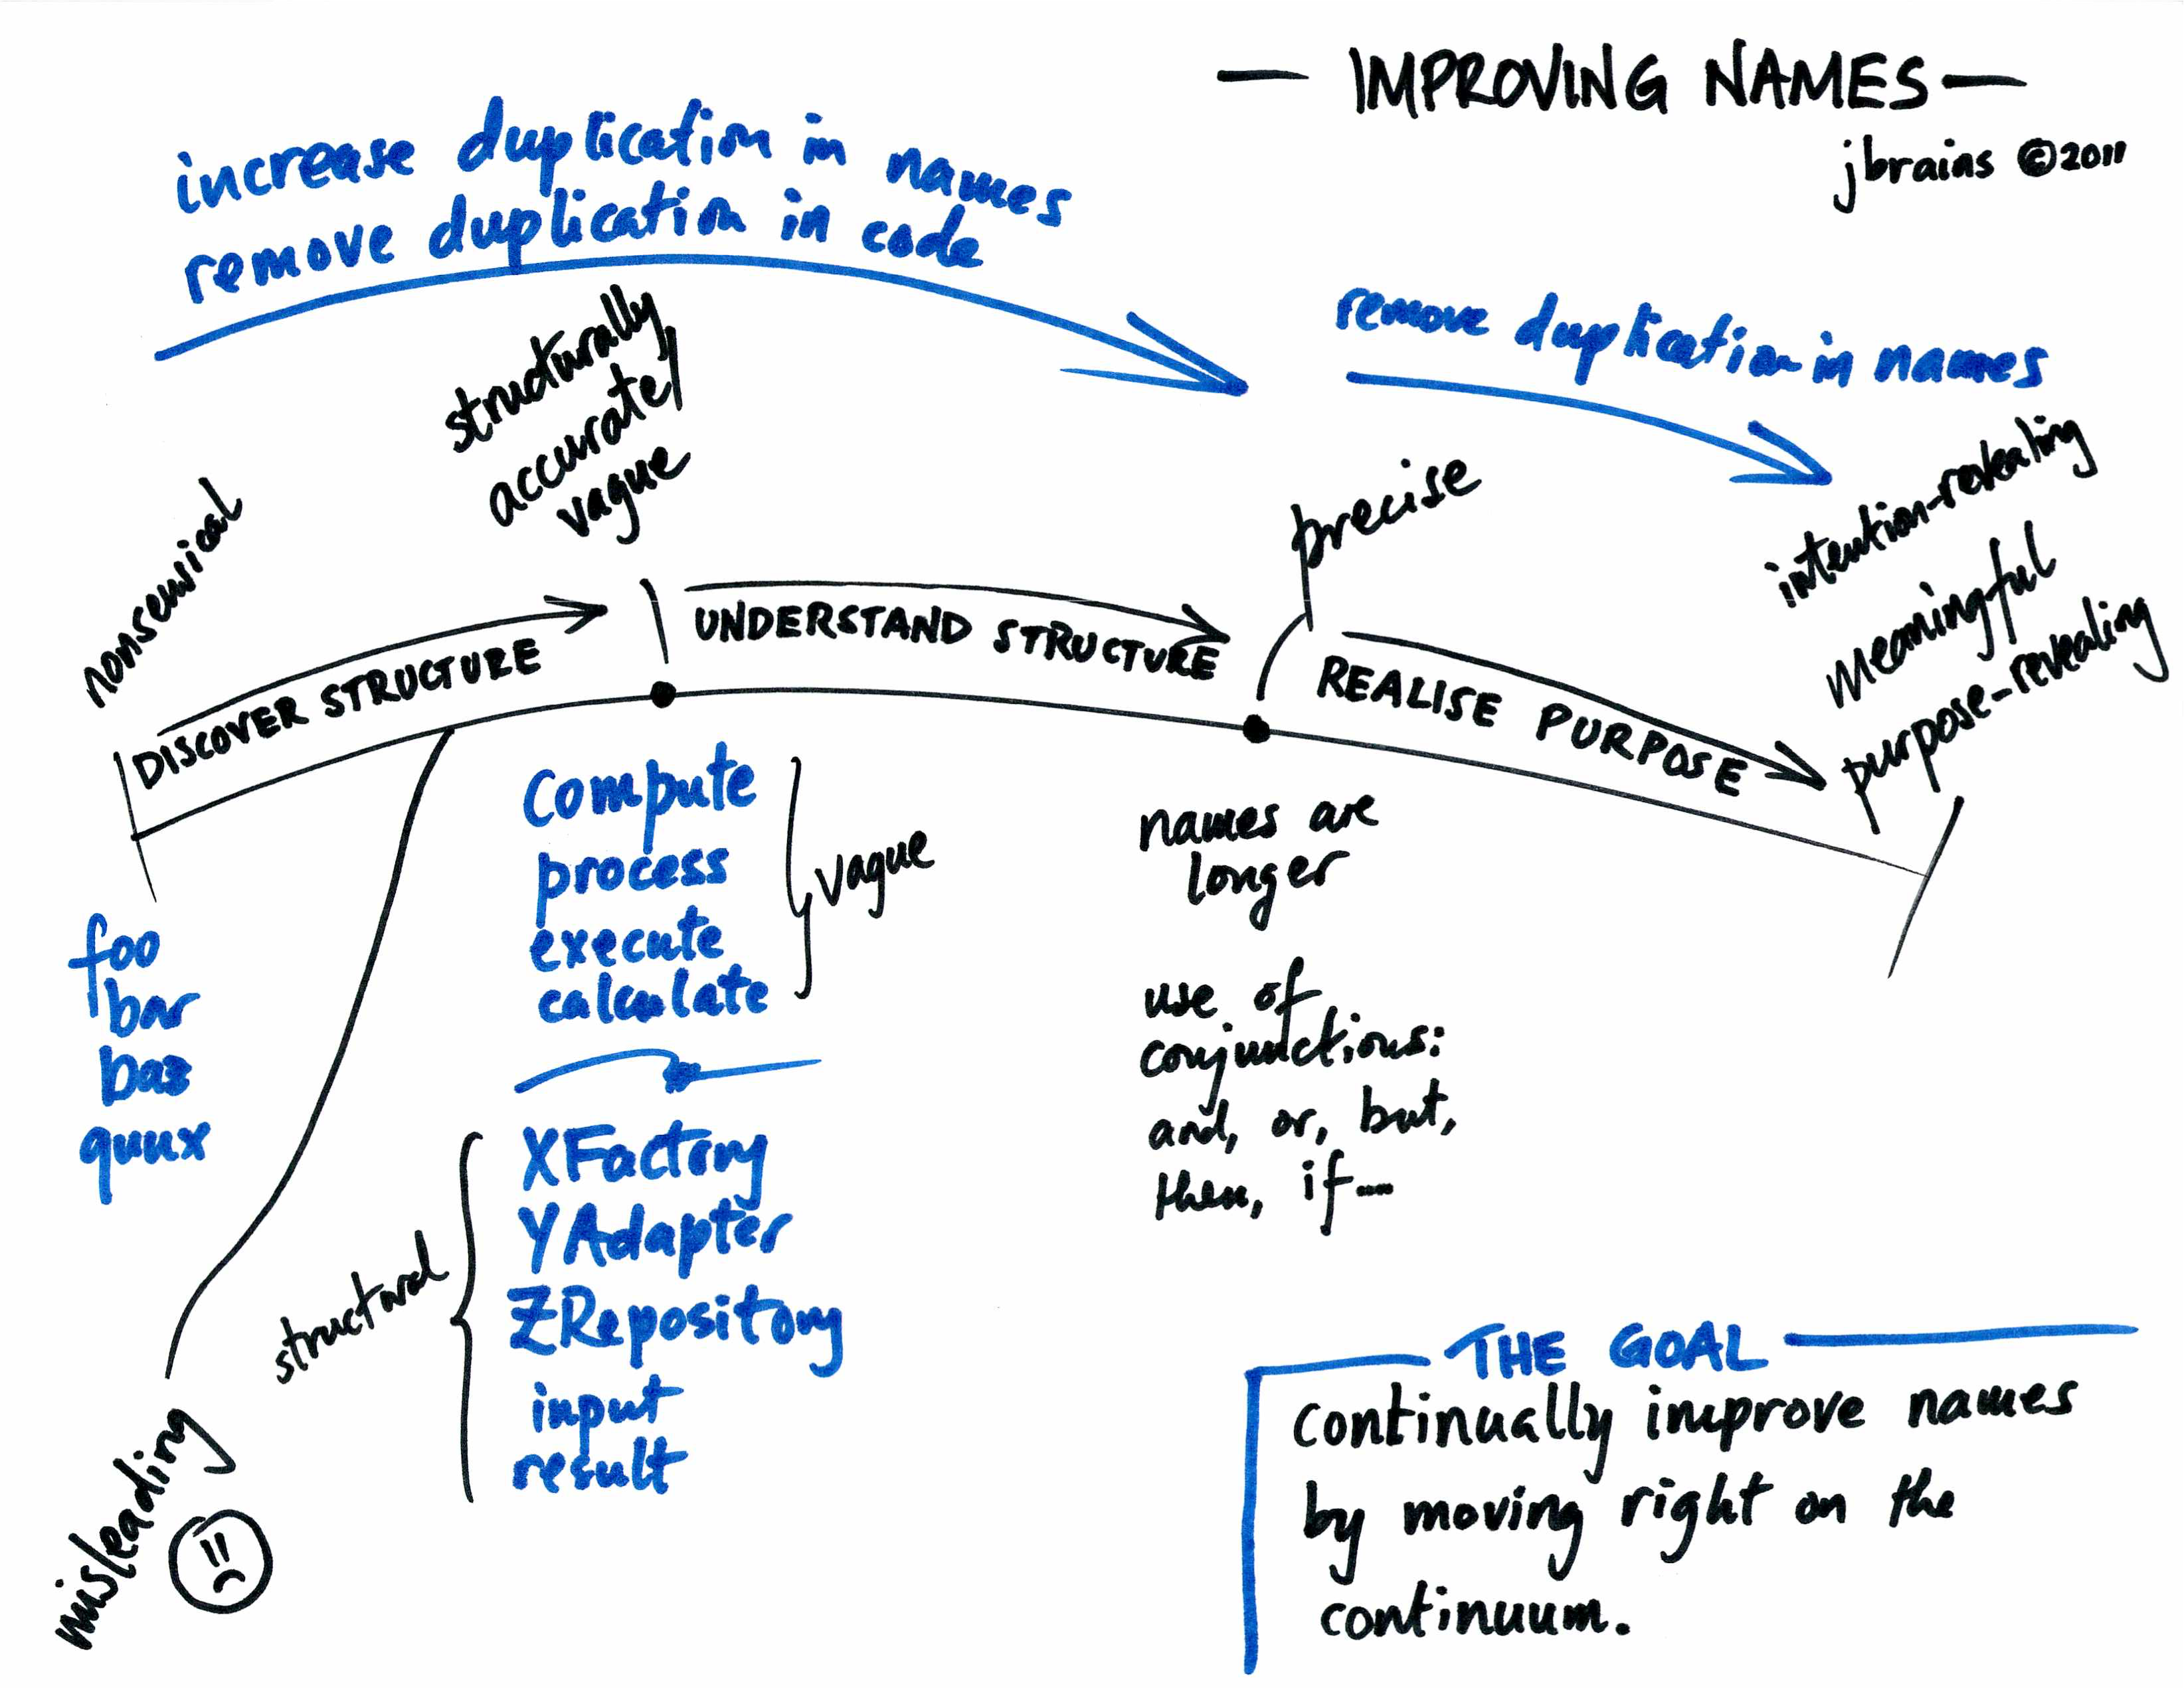 — IMPROVING NAMES —
jbrains ©2011
increase duplication in names
remove duplication in code
remove duplication in names
nonsensical
structurally
accurate/
vague
precise
intention-revealing
meaningful
purpose-revealing
DISCOVER STRUCTURE
UNDERSTAND STRUCTURE
REALISE PURPOSE
foo
bar
baz
quux
compute
process
execute
calculate
vague
structural
XFactory
YAdapter
ZRepository
input
result
names are
longer
use of
conjunctions:
and, or, but,
then, if...
misleading
THE GOAL
continually improve names
by moving right on the
continuum.